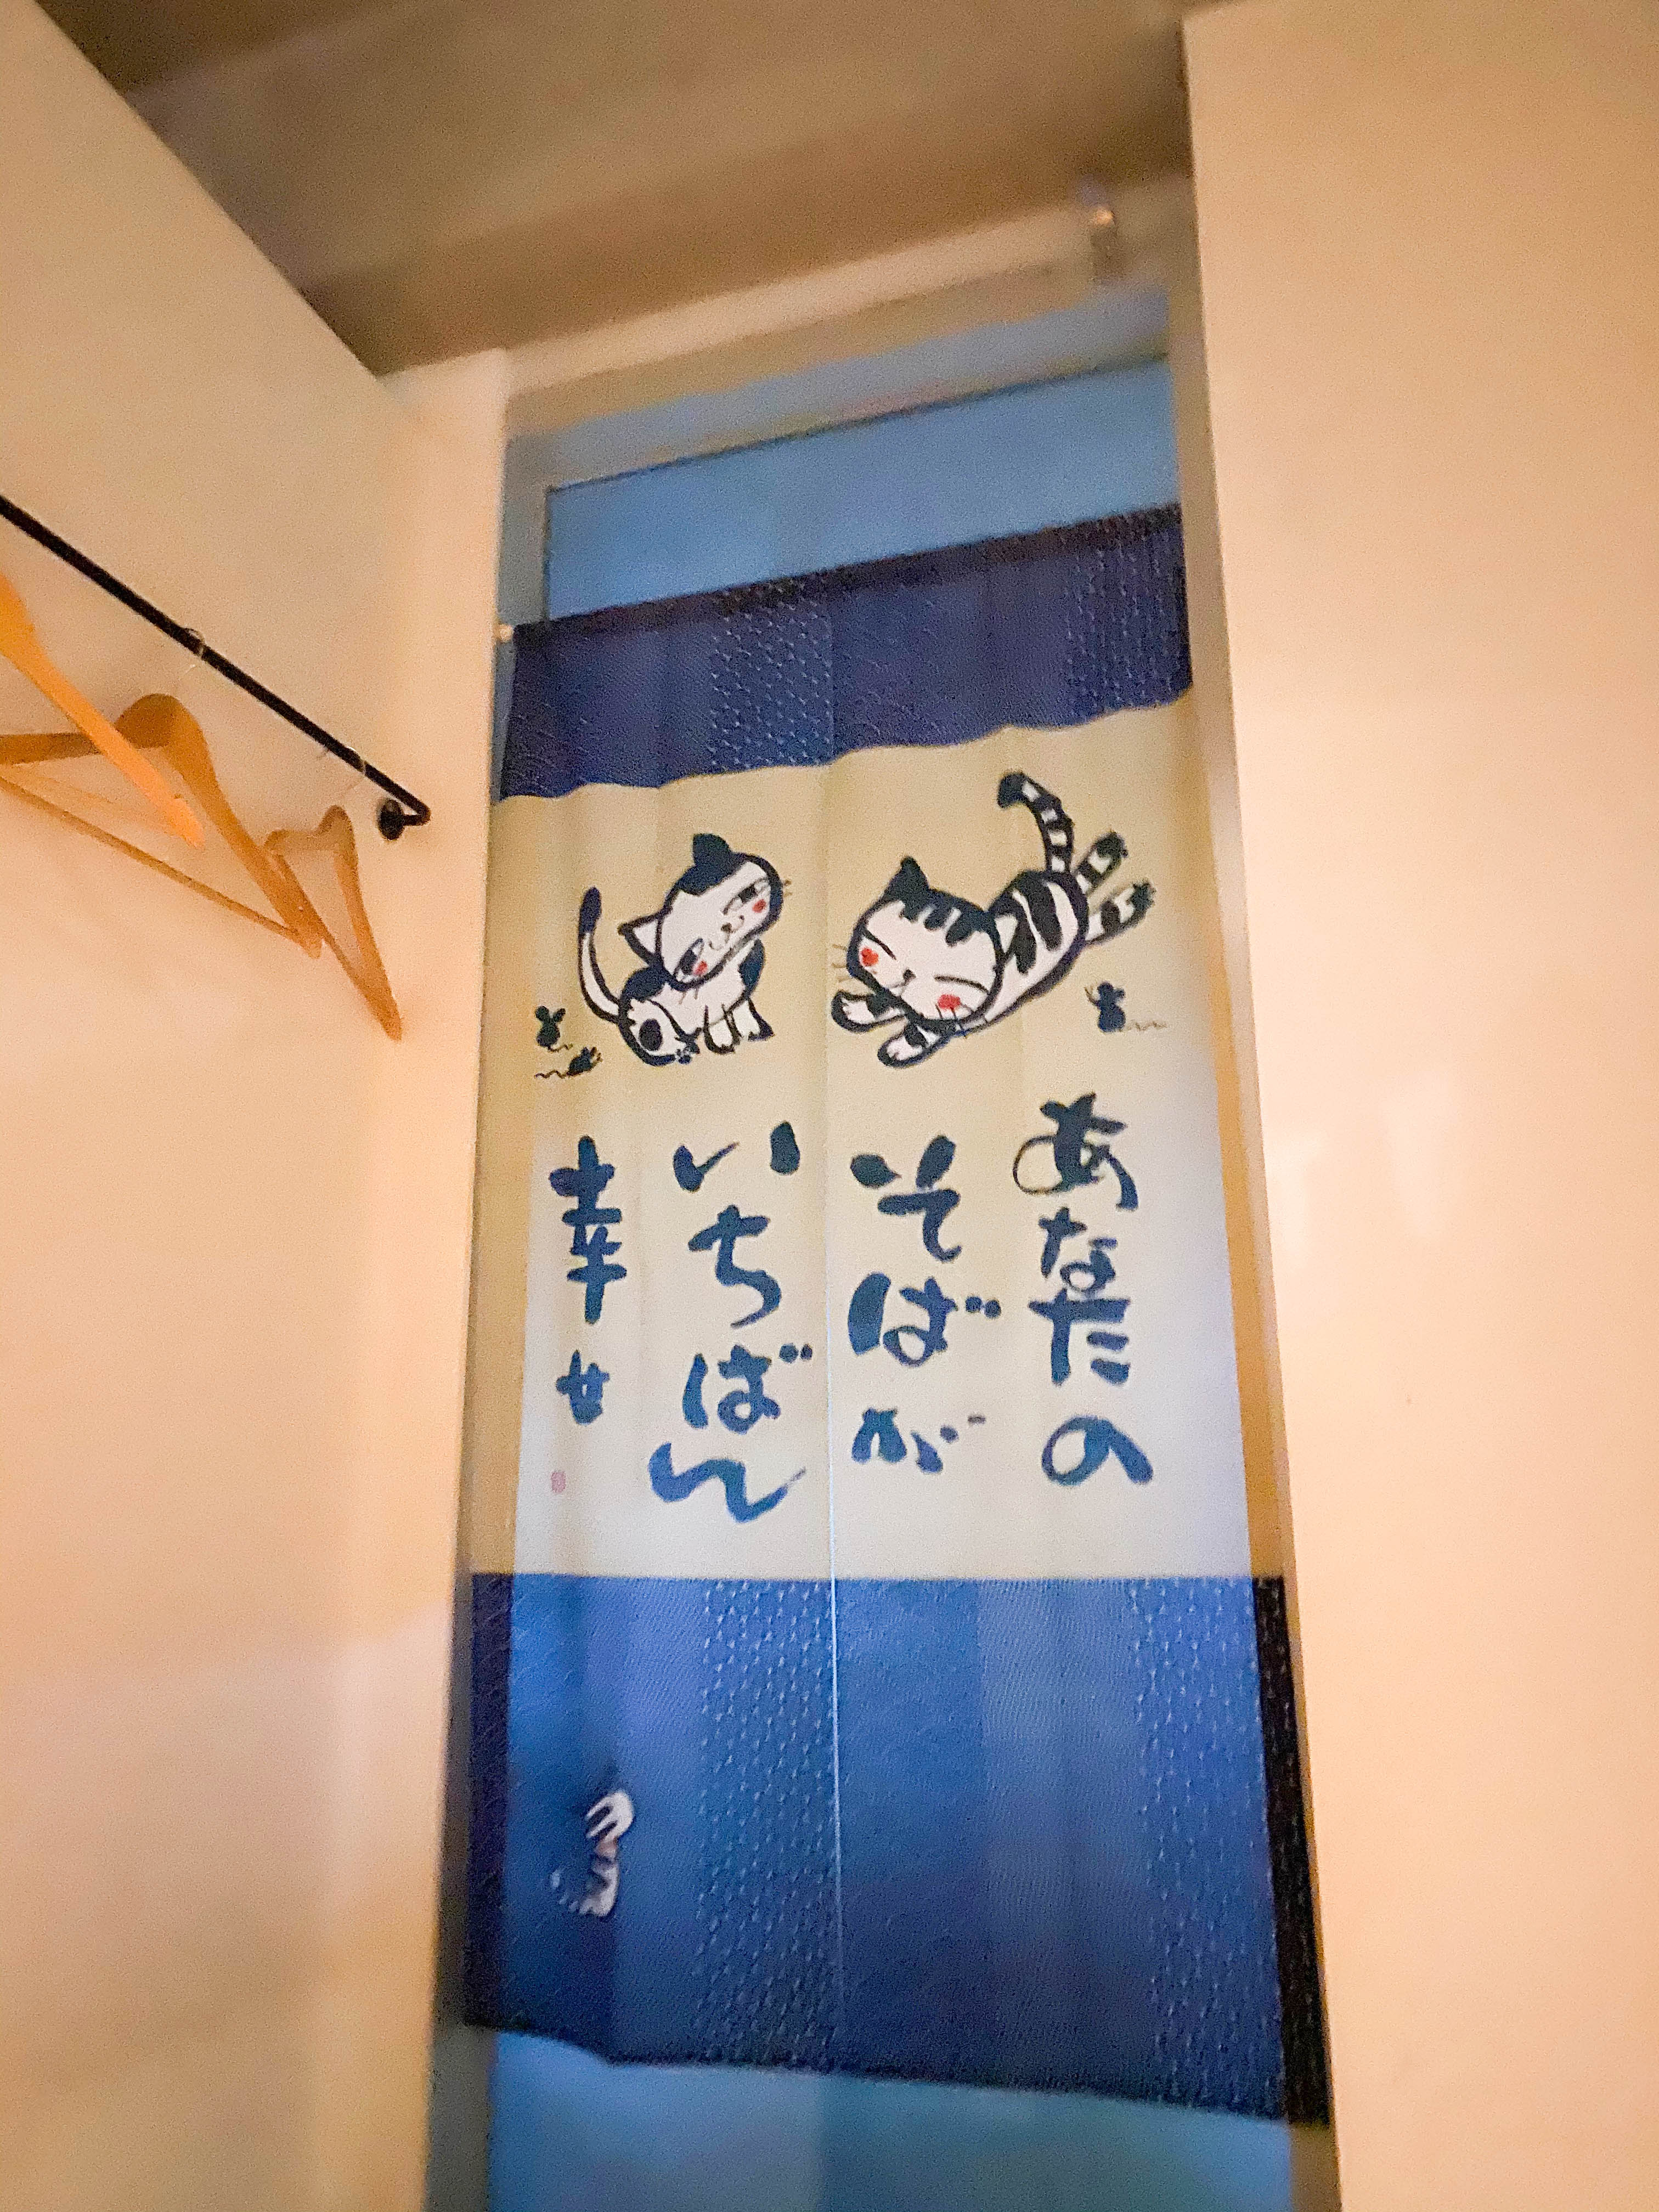 あなたの
そばが
いちばん
幸せ